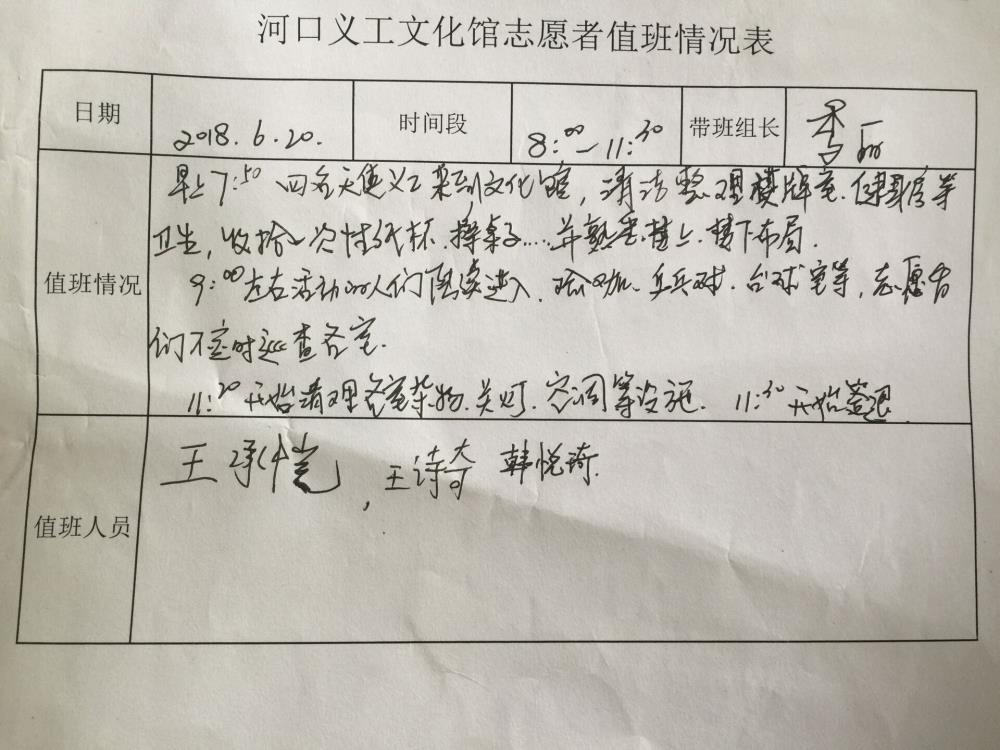 河口义工文化馆志愿者值班情况表
日期 2018.6.20. 时间段 8:00—11:30 带班组长 李丽
早上7:50 四名天使义工来到文化馆，清洁整理棋牌室.健身房等
卫生，收拾一次性纸杯.擦桌子....并熟悉楼上.楼下布局.
值班情况
9:00左右活动的人们陆续进入.瑜咖.乒乓球.台球室等，志愿者
们不定时巡查各室.
11:20开始清理各室杂物.关灯.空调等设施. 11:30开始签退.
王承恺，王诗琦 韩悦琦.
值班人员